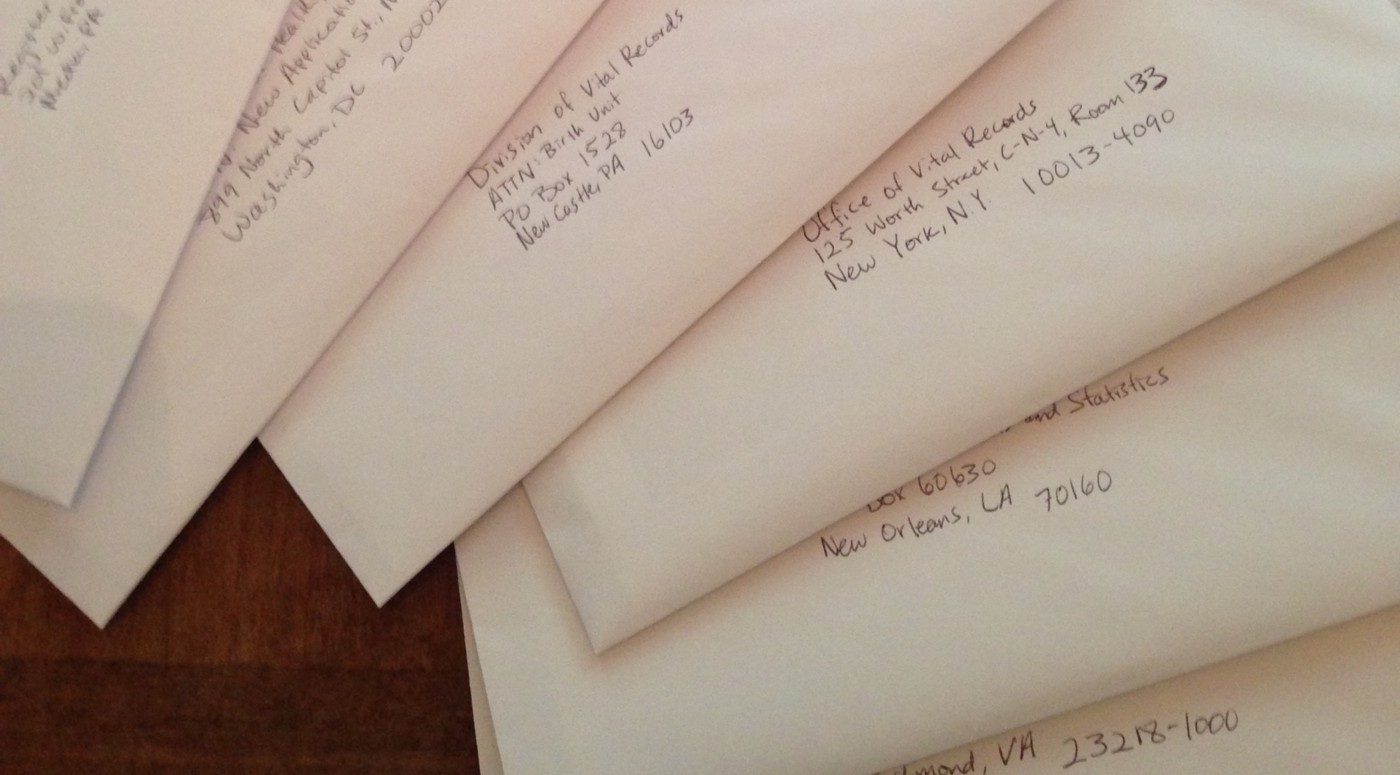 Register
201 W. Fro
Media, PA
Heal
New Applicatio
899 North Capitol St., N
Washington, DC 20002
Division of Vital Records
ATTN: Birth Unit
PO Box 1528
New Castle, PA 16103
Office of Vital Records
125 Worth Street, C-N-4, Room 133
New York, N.Y. 10013-4090
and Statistics
Box 60630
New Orleans, LA 70160
mond, VA 23218-1000